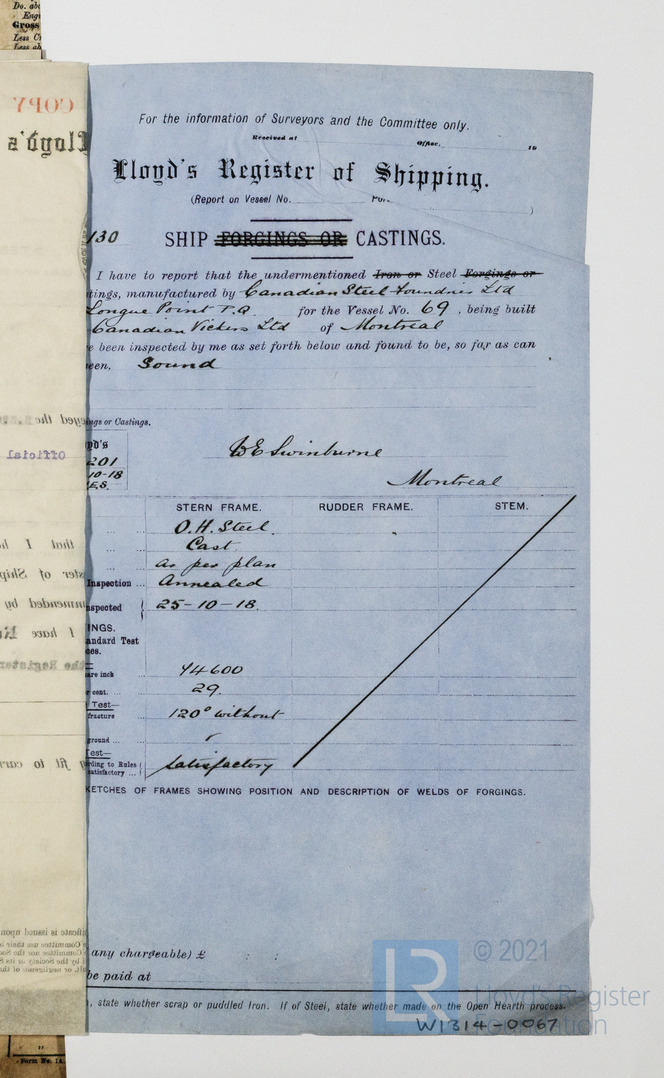 For the information of Surveyors and the Committee only.
Received at
Office,
19
Lloyd's Register of Shipping.
(Report on Vessel No.
Port
)
130
SHIP FORGINGS OR CASTINGS.
I have to report that the undermentioned Iron or Steel Forgings or
tings, manufactured by Canadian Steel Foundries Ltd
Longue Point T.Q. for the Vessel No. 69, being built
Canadian Vickers Ltd of Montreal
e been inspected by me as set forth below and found to be, so far as can
een, Sound
ngs or Castings.
yd's
201
10-18
E.S.
WE Swinburne
Montreal
STERN FRAME. RUDDER FRAME. STEM.
O.H. Steel.
Cast
as per plan
Inspection ... Annealed
nspected 25-10-18.
INGS.
andard Test
ces.
are inch 74600
r cent. ... 29.
Test—
fracture 120° without
ground ... "
Test—
rding to Rules
satisfactory ... satisfactory
KETCHES OF FRAMES SHOWING POSITION AND DESCRIPTION OF WELDS OF FORGINGS.
any chargeable) £ : :
be paid at
, state whether scrap or puddled Iron. If of Steel, state whether made on the Open Hearth process.
© 2021
LR
Lloyd's Register
Foundation
W1314-0067
COPY
Lloyd's
Official
that I ha
ster of Ship
mmended by
I have
the Register
g fit to carry
Do. abo
Engi
Gross
Less C
Less ab
Form No. 1A.